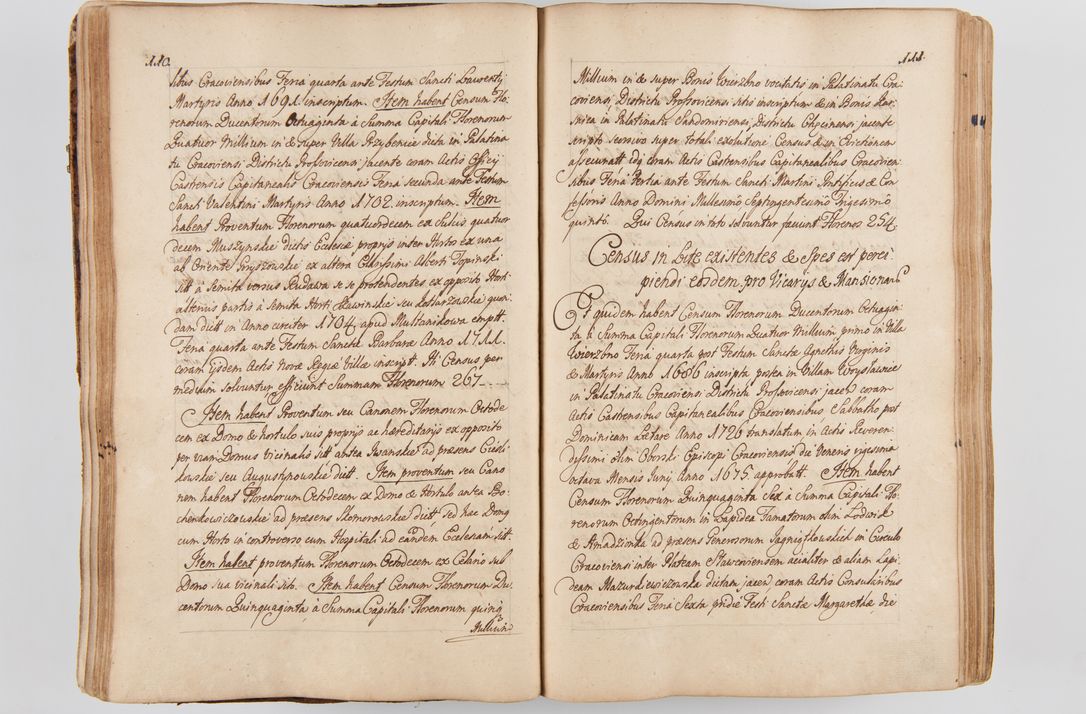 110.
sibus Cracoviensibus Feria quarta ante Festum Sancti Laurentij
Martyris Anno 1691. inscriptum. Item habent Censum Flo-
renorum Ducentorum Octuaginta à Summa Capitali Florenorum
Quatuor Millium in & super Villa Przybenice dicta in Palatina
tu Cracoviensi Districtu Proszovicensi jacente coram Actis Officij
Castrensis Capitanealis Cracoviensi Feria secunda ante Festum
Sancti Valentini Martyris Anno 1702. inscriptum. Item
habent Proventum Florenorum quatuordecem ex Sulcis quatuor
decem Muszynskie dictis Ecclesiæ proprijs inter Horto ex una
ab Oriente Gryszowskie ex altera Clarissimi Alberti Topinski
sitt à Semita versus Rudawa se se protendentes ex opposito Horti
alterius partis à Semita Horti Sławinskie seu Katarzowskie quon-
dam dictt in Anno circiter 1704. apud Multanikowa emptt.
Feria quarta ante Festum Sanctæ Barbaræ Anno 1711.
coram ijsdem Actis Novæ Regiæ Villæ inscript. Hi Census per
medium solvuntur efficiunt Summam Florenorum 267
Item habent Proventum seu Canonem Florenorum Octode
cem ex Domo & hortulo suis proprijs ac hæreditarijs ex opposito
per viam Domus Vicinalis sitt antea Iwanskie ad præsens Ciesli
kowskie seu Augustynowskie dictt. Item proventum seu Cano
nem habent Florenorum Octodecem ex Domo & Hortulo antea Bo-
chenkowiczowskie ad præsens Skomorowskie dictt, sed hæc Domg
cum Horto in controverso cum Hospitali ad eandem Ecclesiam sitt.
Item habent proventum Florenorum Octodecem ex Celario sub
Domo sua vicinali sitt. Item habent Censum Florenorum Du
centorum Quinquaginta à Summa Capitali Florenorum quinq
Millium
111.
Millium in & super Bonis Wierzbno vocitatis in Palatinatu Cra-
coviensi, Districtu Proszovicensi sitis inscriptum & in Bonis
in Palatinatu Sandomiriensi, Districtu Chęcinensi jacente
scripto seorsivo super totali exolutione Census & in Evictionem
assecuratt eoq coram Actis Castrensibus Capitanealibus Cracovien-
sibus Feria Tertia ante Festum Sancti Martini Pontificis & Con-
fessoris Anno Domini Millesimo Septingentesimo Trigesimo
quinto. Qui Census in toto solvuntur faciunt Florenos 254.
Census in Lite existentes & Spes est perci
piendi eosdem, pro Vicarijs & Mansionarijs
Et quidem habent Censum Florenorum Ducentorum Octuagin-
ta à Summa Capitali Florenorum Quatuor Millium, primo in Villa
Wierzbno Feria quarta post Festum Sanctæ Agnethis Virginis
& Martyris Anno 1666 inscripta postea in Villam Woysławice
in Palatinatu Cracoviensi Districtu Proszovicensi jacen coram
Actis Castrensibus Capitanealibus Cracoviensibus Sabbatho post
Dominicam Lætare Anno 1726 translatum in Actis Reveren-
dissimi olim Oborski Episcopi Cracoviensis die Veneris vigesima
octava Mensis Iunij, Anno 1675 approbatt. Item habent
Censum Florenorum Quinquaginta Sex à Summa Capitali Flo-
renorum Octingentorum in Lapidea Famatorum olim Lodwisk
& Amadzionka ad præsens Generosorum Sagnigflowskich in Circulo
Cracoviensi inter Plateam Slawcoviensem acialiter & aliam Lapi-
deam Mazurkiewiczowska dictam jacen coram Actis Consularibus
Cracoviensibus Feria Sexta pridie Festi Sanctæ Margarethæ die